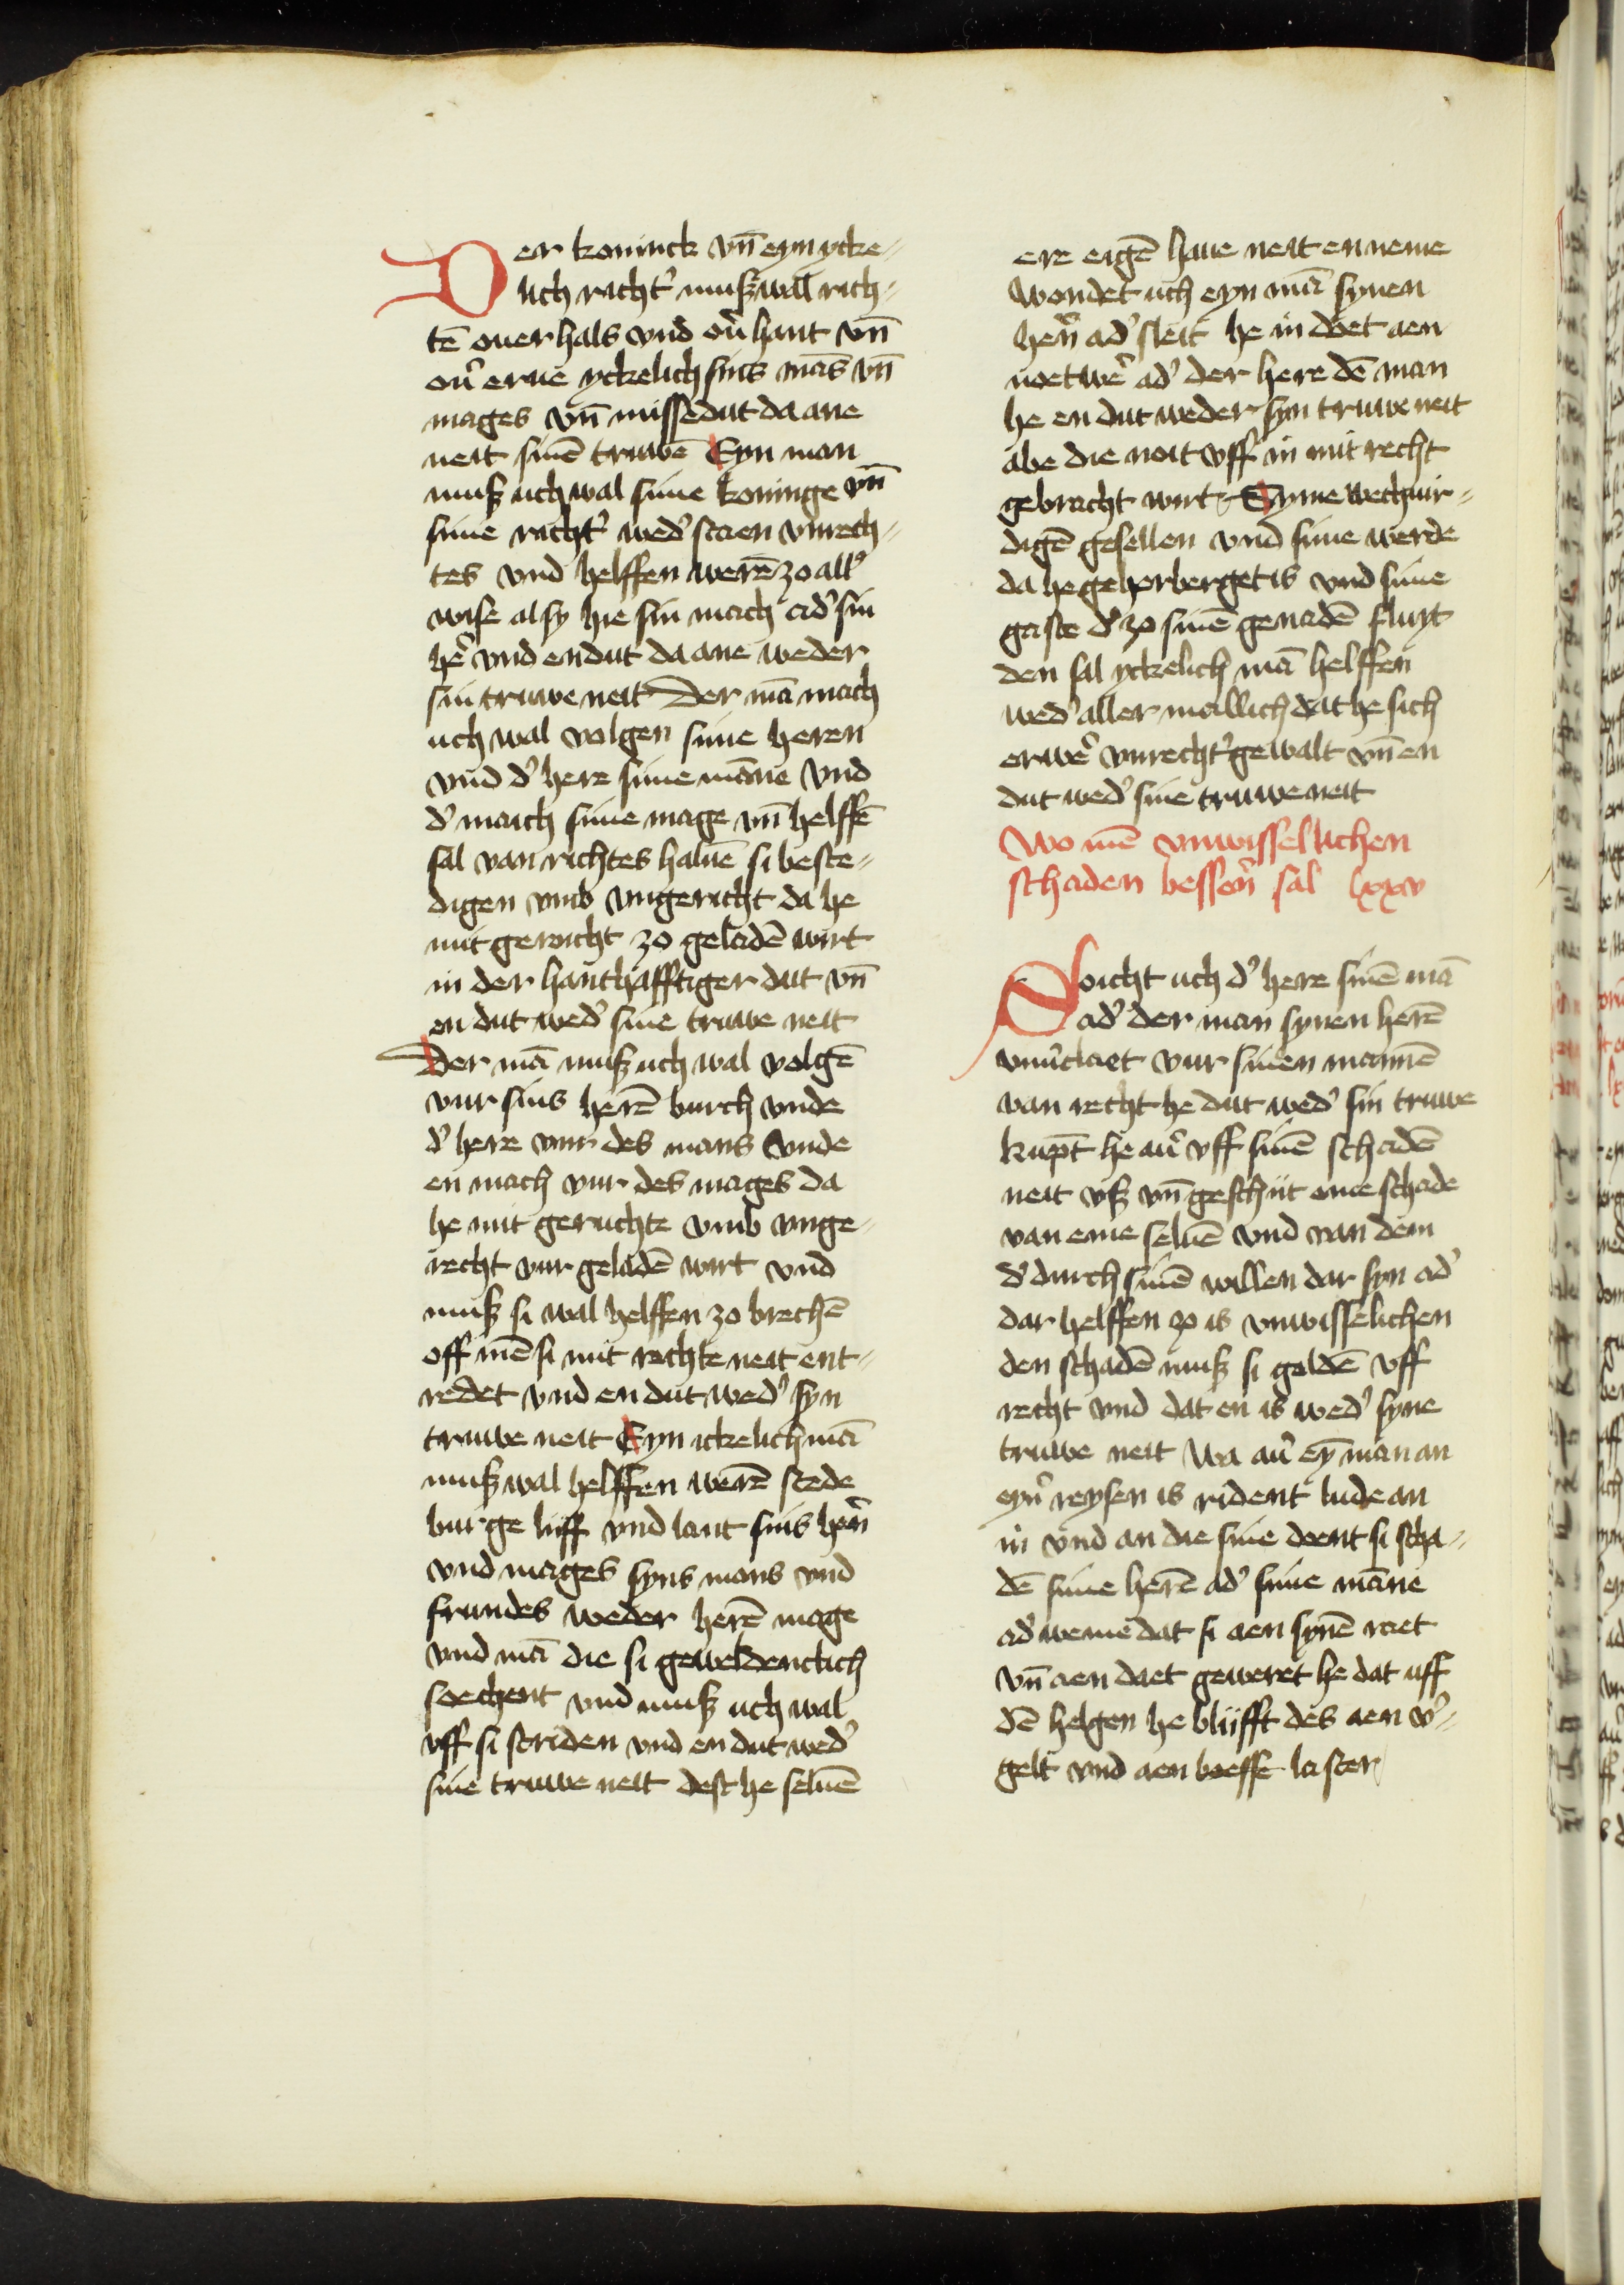 Der koninck vn̄ eyn ycke⸗
lich richt' muß wall rich⸗
tē ouer hals vnd ou' hant vn̄
ou' erue yckelich sins mās vn̄
mages vn̄ missedut da ane
neit sinē truwē Eyn man
muß uch wal sime koninge vn̄
sime richt' wed' staen vnrech⸗
tes vnd helffen werē zo all'
wise al sy hie sin mach ad' sin
he' vnd endut da ane weder
sin truwe neit Der mā mach
uch wal volgen sime heren
vnd d' here sime māne vnd
d' maich sime mage vn̄ helffē
sal van richtes haluē si beste⸗
digen vmb vngericht da he
mit geruicht zo geladē wirt
in der hanthafftiger dat vn̄
en dut wed' sine truwe neit
Der mā muß uch wal volgē
vur sins herē burch vnde
d' here vur des mans vnde
en mach vur des mages da
he mit geruchte vmb vnge⸗
recht vur geladē wirt vnd
muß si wal helffen zo brechē
off mē si mit rechte neit ent⸗
redet vnd en dut wed' syn
truwe neit Eyn ickelich mā
muß wal helffen werē stede
burge lijff vnd lant sins hern̄
vnd mages syns mans vnd
frundes weder herē mage
vnd mā die si geweldenclich
soechent vnd muß uch wal
vff si striden vnd en dut wed'
sine truwe neit dest he seluē
ere eigē haue neit en neme
Wondet uch eyn mā synen
hern̄ ad' sleit he in doet aen
noetwe' ad' der here dē man
he en dut weder syn truwe neit
abe die noit vff in mit recht
gebracht wirt Eyme wechuir⸗
digē gesellen vnd sime werde
da he geherberget is vnd sime
gaste d' zo sinē genadē fluyt
den sal yckelich mā helffen
wed' aller mallich dat he sich
erwe' vnrecht' gewalt vn̄ en
dut wed' sine truwe neit
Wo mē vnwissellichen
schaden bessern̄ sal lxxv
Soicht uch d' here sinē mā
ad' der man synen herē
vnu'claet vur sinen mannē
van recht he dut wed' sin truwe
kupt he au' vff sinē schadē
neit vß vn̄ geschijt eme schade
van eme seluē vnd van dem
d' durch sinē willen dar syn ad'
dar helffen zo is vnwisselichen
den schadē muß si geldē vff
recht vnd dat en is wed' syne
truwe neit Wa au' ey̅ man an
eyn' reysen is rident lude an
in vnd an die sine doent si scha⸗
dē sime herē ad' sime māne
ad' weme dat si aen synē raet
vn̄ aen daet geweret he dat uff
dē helgen he blijfft des aen v'⸗
gelt vnd aen boesse laster